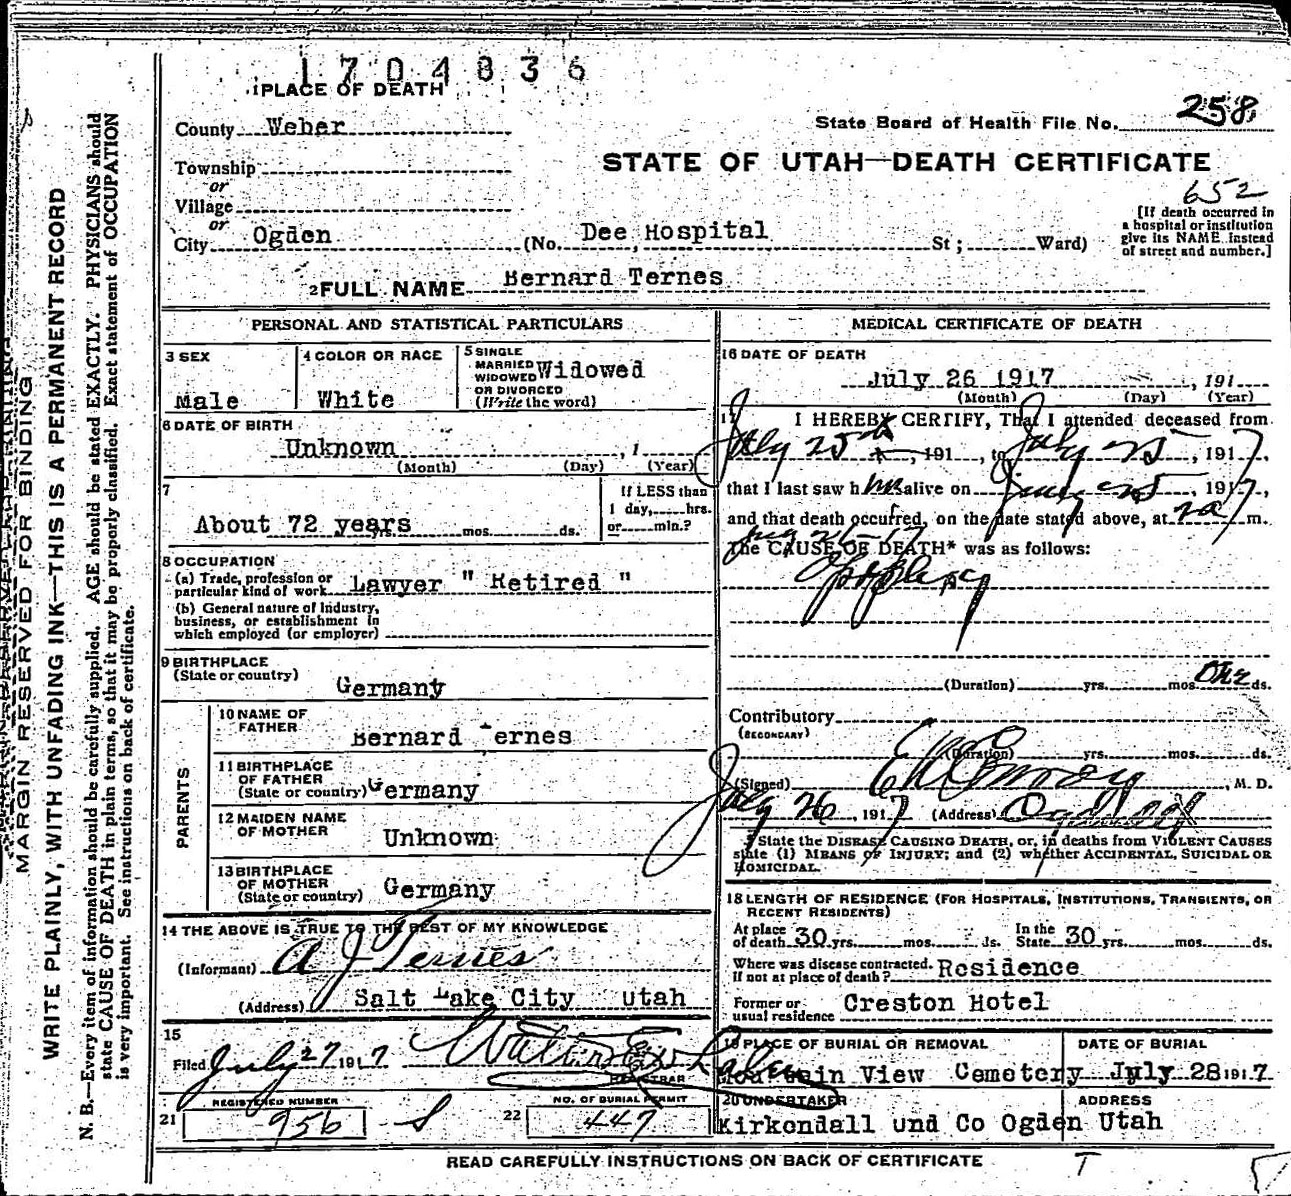 1704836
1 PLACE OF DEATH
County Weber
State Board of Health File No. 258
Township
or
Village
or
City Ogden
STATE OF UTAH—DEATH CERTIFICATE
652
(No. Dee Hospital St; Ward)
[If death occurred in
a hospital or institution
give its NAME instead
of street and number.]
2 FULL NAME Bernard Ternes
PERSONAL AND STATISTICAL PARTICULARS
3 SEX
Male
4 COLOR OR RACE
White
5 SINGLE
MARRIED
WIDOWED
OR DIVORCED
(Write the word)
Widowed
6 DATE OF BIRTH
Unknown , 1
(Month) (Day) (Year)
7
About 72 years
yrs. mos. ds.
If LESS than
1 day, hrs.
or min.?
8 OCCUPATION
(a) Trade, profession or
particular kind of work Lawyer " Retired "
(b) General nature of Industry,
business, or establishment in
which employed (or employer)
9 BIRTHPLACE
(State or country)
Germany
PARENTS
10 NAME OF
FATHER
Bernard ernes
11 BIRTHPLACE
OF FATHER
(State or country) Germany
12 MAIDEN NAME
OF MOTHER
Unknown
13 BIRTHPLACE
OF MOTHER
(State or country) Germany
14 THE ABOVE IS TRUE TO THE BEST OF MY KNOWLEDGE
(Informant) A J Ternes
(Address) Salt Lake City Utah
15
Filed July 27 1917
REGISTRAR
REGISTERED NUMBER
21 956 S
NO. OF BURIAL PERMIT
22 447
MEDICAL CERTIFICATE OF DEATH
16 DATE OF DEATH
July 26 1917 , 191
(Month) (Day) (Year)
17 I HEREBY CERTIFY, That I attended deceased from
July 25th , 191 , to July 25 , 1917,
that I last saw him alive on July 25 , 1917,
and that death occurred, on the date stated above, at 2a m.
The CAUSE OF DEATH* was as follows:
Apoplexy
(Duration) yrs. mos. One ds.
Contributory
(SECONDARY)
(Duration) yrs. mos. ds.
(Signed) , M. D.
July 26 , 1917 (Address) Ogden
* State the DISEASE CAUSING DEATH, or, in deaths from VIOLENT CAUSES
state (1) MEANS OF INJURY; and (2) whether ACCIDENTAL, SUICIDAL OR
HOMICIDAL.
18 LENGTH OF RESIDENCE (FOR HOSPITALS, INSTITUTIONS, TRANSIENTS, OR
RECENT RESIDENTS)
At place
of death 30 yrs. mos. ds.
In the
State 30 yrs. mos. ds.
Where was disease contracted.
If not at place of death? Residence
Former or
usual residence Creston Hotel
19 PLACE OF BURIAL OR REMOVAL
Mountain View Cemetery
DATE OF BURIAL
July 28 1917
20 UNDERTAKER
Kirkendall und Co
ADDRESS
Ogden Utah
READ CAREFULLY INSTRUCTIONS ON BACK OF CERTIFICATE
T
MARGIN RESERVED FOR BINDING
WRITE PLAINLY, WITH UNFADING INK—THIS IS A PERMANENT RECORD
N. B.—Every item of information should be carefully supplied. AGE should be stated EXACTLY. PHYSICIANS should
state CAUSE OF DEATH in plain terms, so that it may be properly classified. Exact statement of OCCUPATION
is very important. See instructions on back of certificate.